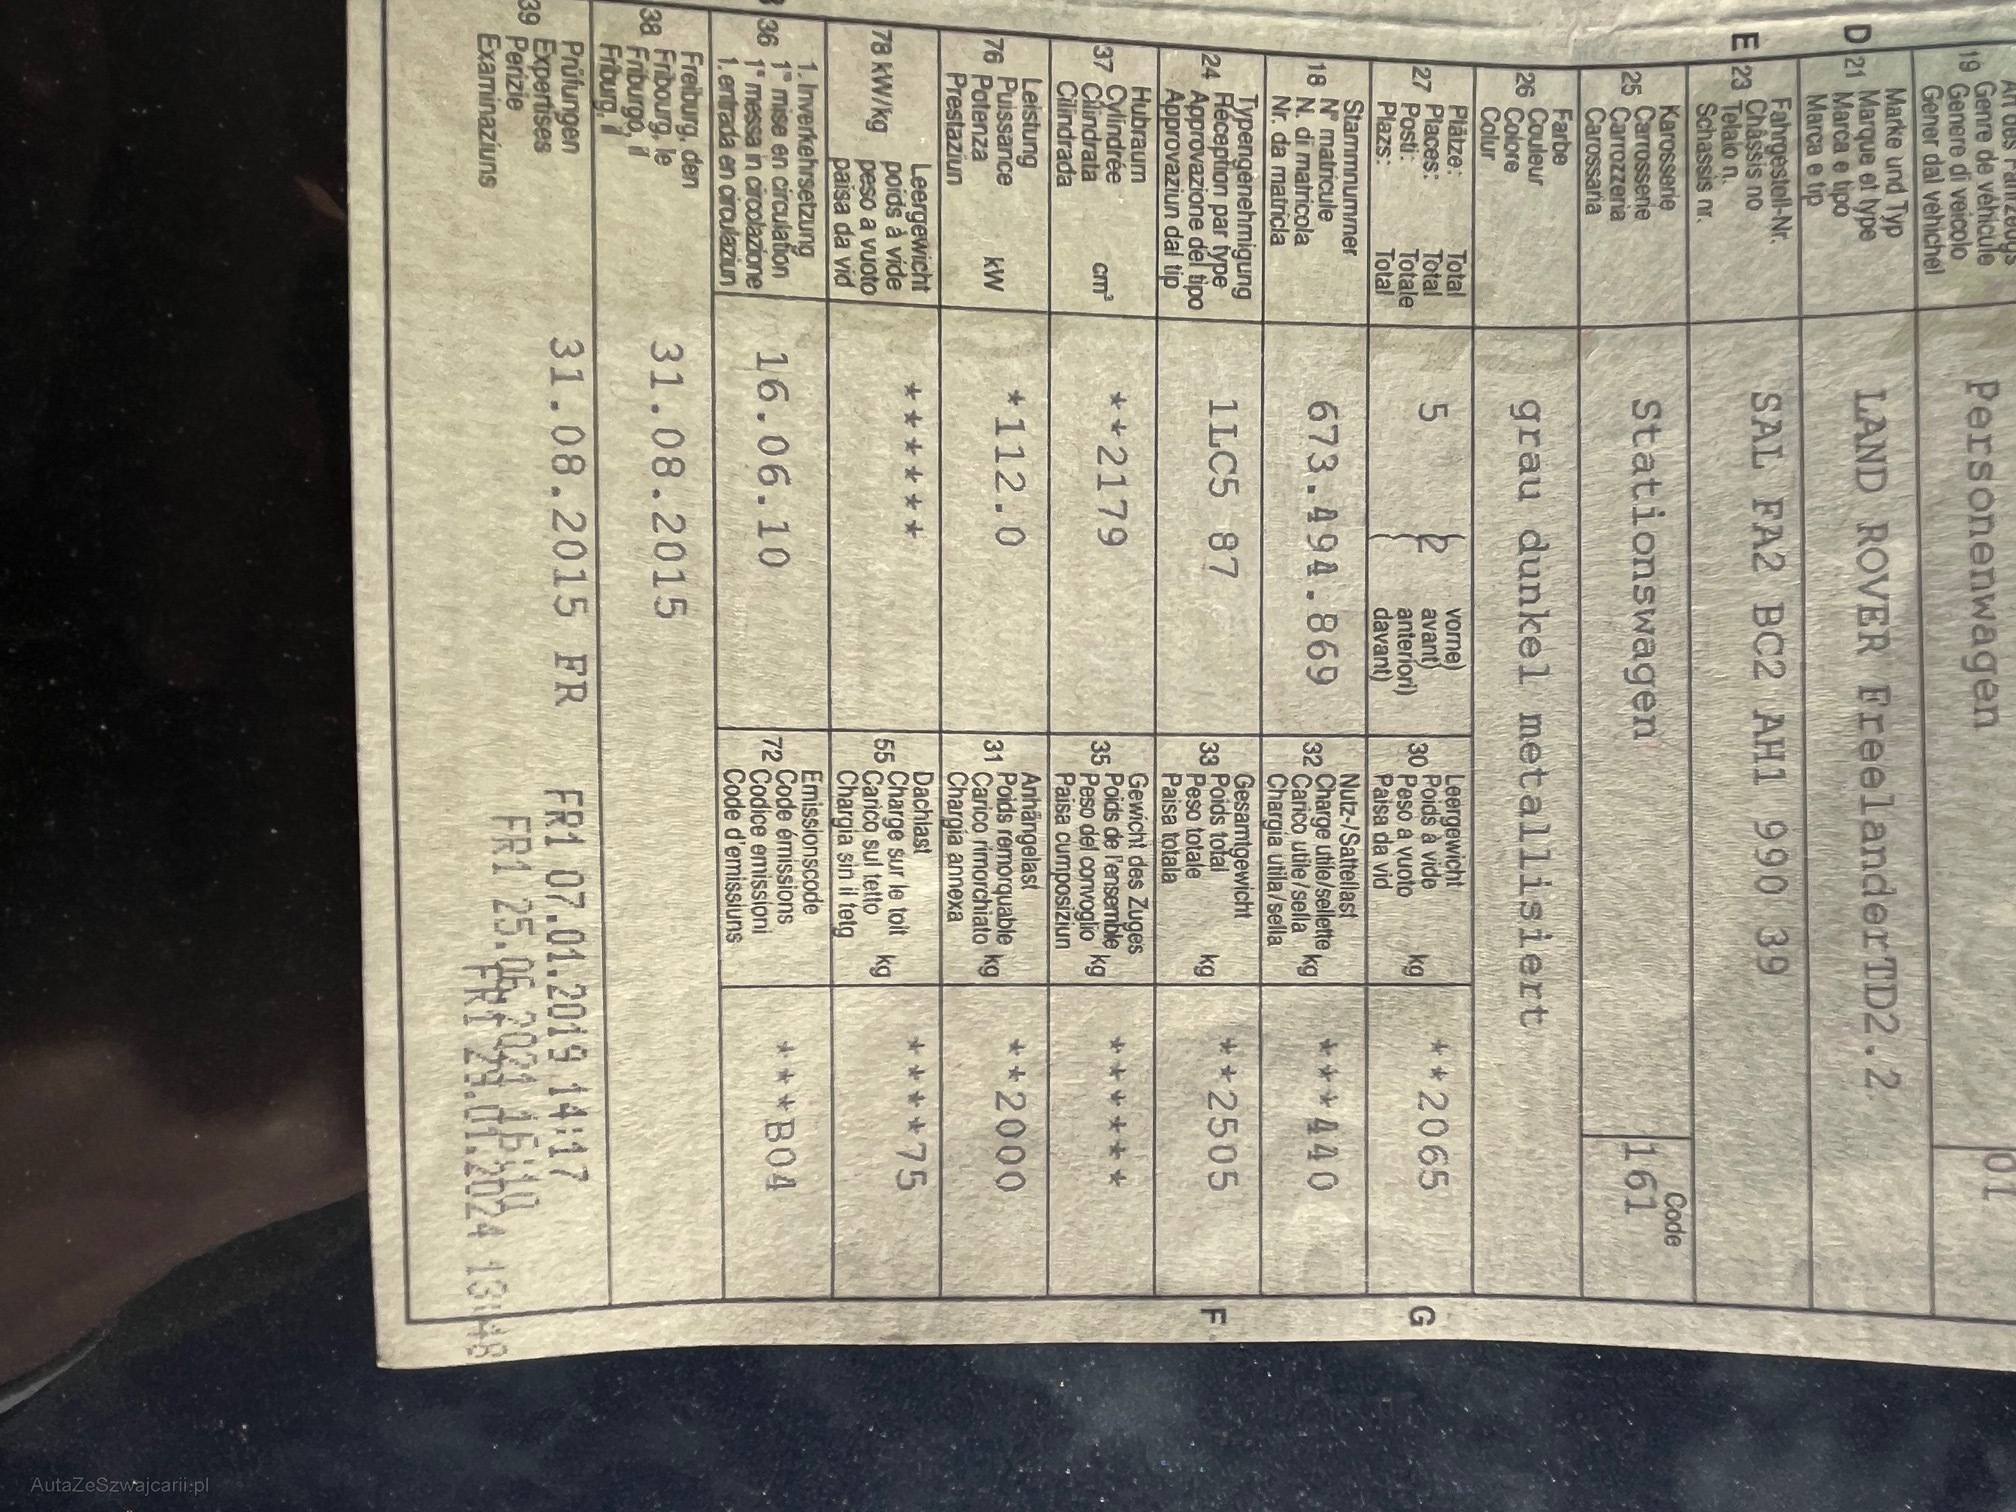 19 Genre de véhicule
Genere di veicolo
Gener dal vehichel
Personenwagen
01
D
Marke und Typ
21 Marque et type
Marca e tipo
Marca e tip
LAND ROVER FreelanderTD2.2
E
Fahrgestell-Nr.
23 Châssis no
Telaio n.
Schassis nr.
SAL FA2 BC2 AH1 990 39
Karosserie
25 Carrosserie
Carrozzeria
Carossaria
Stationswagen
Code
161
Farbe
26 Couleur
Colore
Colur
grau dunkel metallisiert
Plätze: Total
27 Places: Total
Posti: Totale
Plazs: Total
5 (2
vorne)
avant)
anteriori)
davant)
Leergewicht
30 Poids à vide
Peso a vuoto kg
Paisa da vid
**2065
G
Stammnummer
18 N° matricule
N. di matricola
Nr. da matricla
673.494.869
Nutz-/Sattellast
32 Charge utile/sellette kg
Carico utile/sella
Chargia utila/sella
***440
Typengenehmigung
24 Réception par type
Approvazione del tipo
Approvaziun dal tip
1LC5 87
Gesamtgewicht
33 Poids total
Peso totale kg
Paisa totala
**2505
F
Hubraum
37 Cylindrée
Cilindrata cm³
Cilindrada
**2179
Gewicht des Zuges
35 Poids de l'ensemble
Peso del convoglio kg
Paisa cumposiziun
******
Leistung
76 Puissance
Potenza kW
Prestaziun
*112.0
Anhängelast
31 Poids remorquable
Carico rimorchiato kg
Chargia annexa
**2000
Leergewicht
78 kW/kg poids à vide
peso a vuoto
paisa da vid
******
Dachlast
55 Charge sur le toit
Carico sul tetto kg
Chargia sin il tetg
****75
1. Inverkehrsetzung
36 1re mise en circulation
1a messa in circolazione
1. entrada en circulaziun
16.06.10
Emissionscode
72 Code émissions
Codice emissioni
Code d'emissiuns
***B04
Freiburg, den
38 Fribourg, le
Friburgo, il
Friburg, il
31.08.2015
Prüfungen
39 Expertises
Perizie
Examinaziuns
31.08.2015 FR
FR1 07.01.2019 14:17
FR1 25.06.2021
FR1 29.01.2024 13:48
AutaZeSzwajcarii.pl